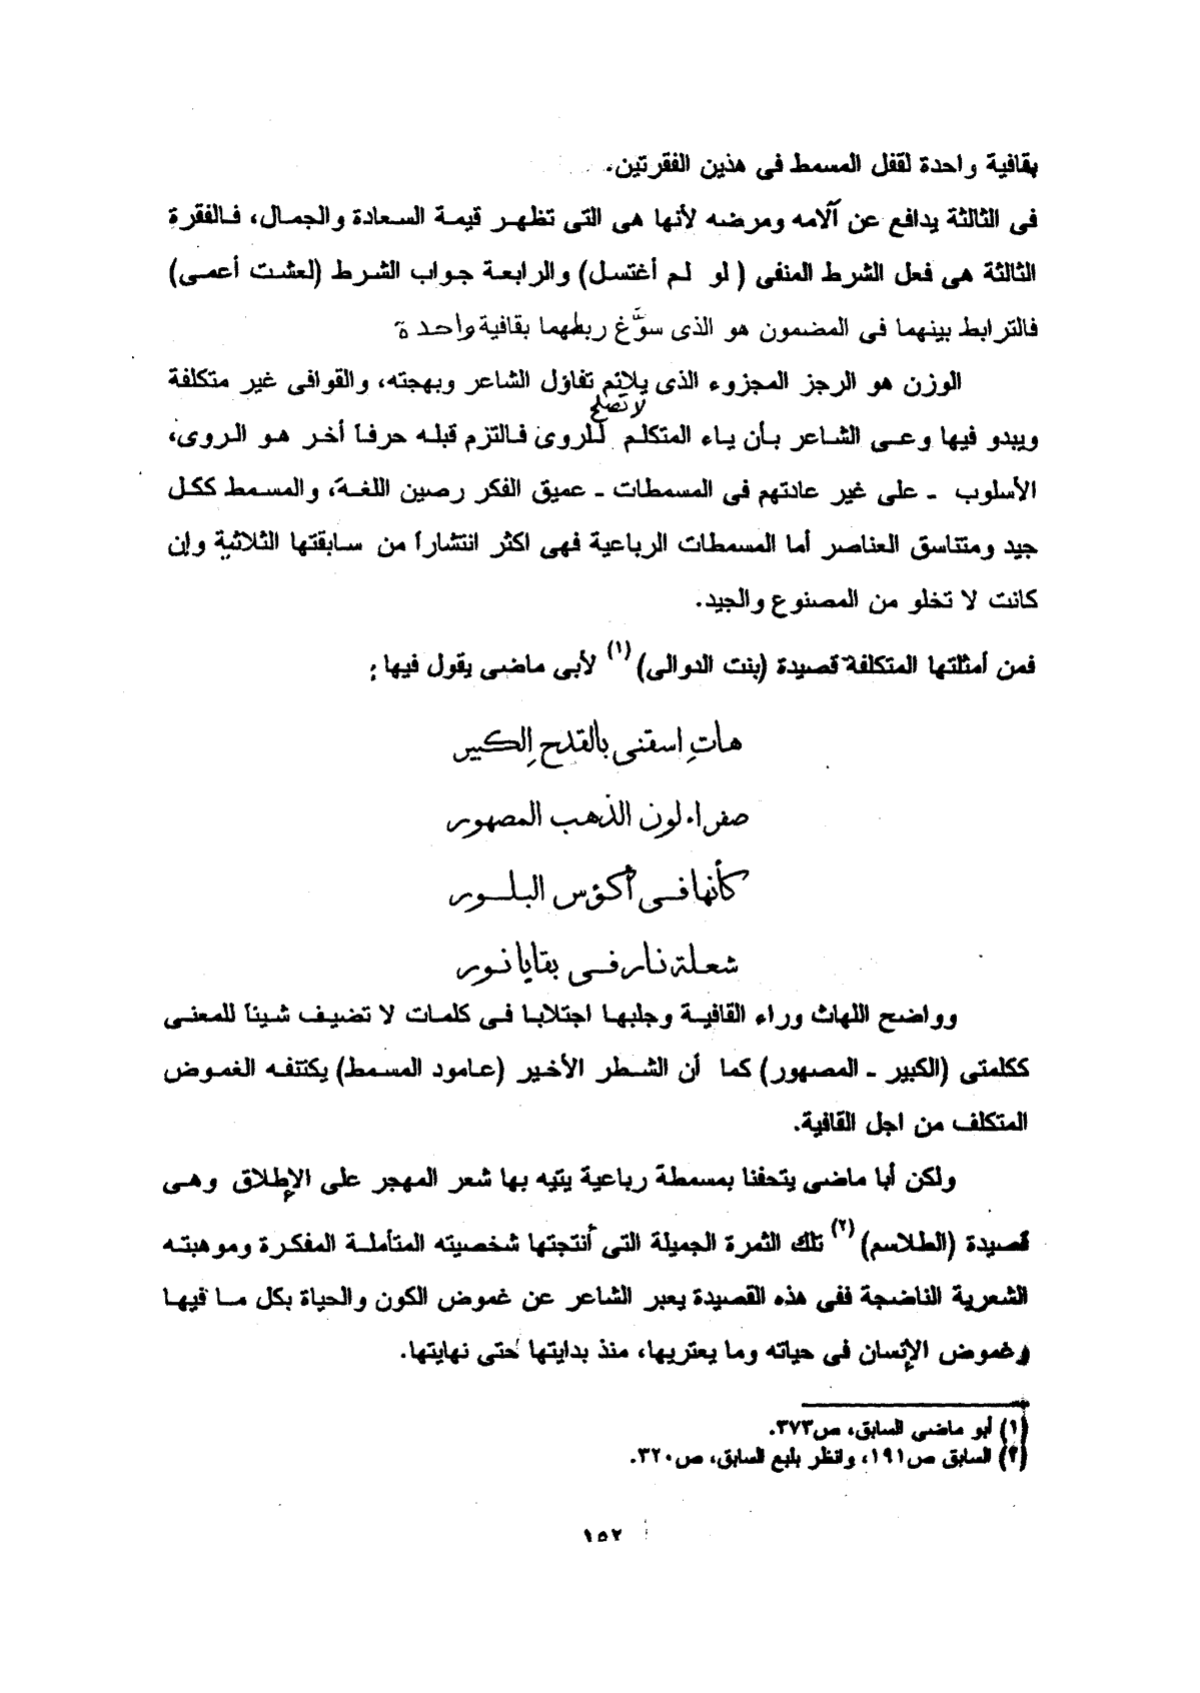 بقافية واحدة لقفل المسمط فى هذين الفقرتين.
فى الثالثة يدافع عن آلامه ومرضه لأنها هى التى تظهر قيمة السعادة والجمال، فالفقرة
الثالثة هى فعل الشرط المنفى ( لو لم أغتسل) والرابعة جواب الشرط (لعشت أعمى)
فالترابط بينهما فى المضمون هو الذى سوَّغ ربطهما بقافية واحدة
الوزن هو الرجز المجزوء الذى يلائم تفاؤل الشاعر وبهجته، والقوافى غير متكلفة
لا تصلح
ويبدو فيها وعى الشاعر بأن ياء المتكلم للروى فالتزم قبله حرفاً أخر هو الروى،
الأسلوب - على غير عادتهم فى المسمطات - عميق الفكر رصين اللغة، والمسمط ككل
جيد ومتناسق العناصر أما المسمطات الرباعية فهى اكثر انتشاراً من سابقتها الثلاثية وإن
كانت لا تخلو من المصنوع والجيد.
فمن أمثلتها المتكلفة قصيدة (بنت الدوالى)(١) لأبى ماضى يقول فيها:
هاتِ اسقنى بالقدحِ الكبير
صفراء لون الذهب المصهور
كأنها فى أكؤس البلور
شعلة نار فى بقايا نور
وواضح اللهاث وراء القافية وجلبها اجتلابا فى كلمات لا تضيف شيئاً للمعنى
ككلمتى (الكبير - المصهور) كما أن الشطر الأخير (عامود المسمط) يكتنفه الغموض
المتكلف من اجل القافية.
ولكن أبا ماضى يتحفنا بمسمطة رباعية يتيه بها شعر المهجر على الإطلاق وهى
قصيدة (الطلاسم)(٢) تلك الثمرة الجميلة التى أنتجتها شخصيته المتأملة المفكرة وموهبته
الشعرية الناضجة ففى هذه القصيدة يعبر الشاعر عن غموض الكون والحياة بكل ما فيها
وغموض الإنسان فى حياته وما يعتريها، منذ بدايتها حتى نهايتها.
(١) أبو ماضى السابق، ص٣٧٣.
(٢) السابق ص١٩١، وانظر بلبع السابق، ص٣٢٠.
١٥٢